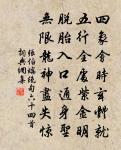 四象會時玄體就
五行全處紫金明
脫胎入口通身聖
無限龍神盡失驚
張伯端絕句六十四首
詞典網集